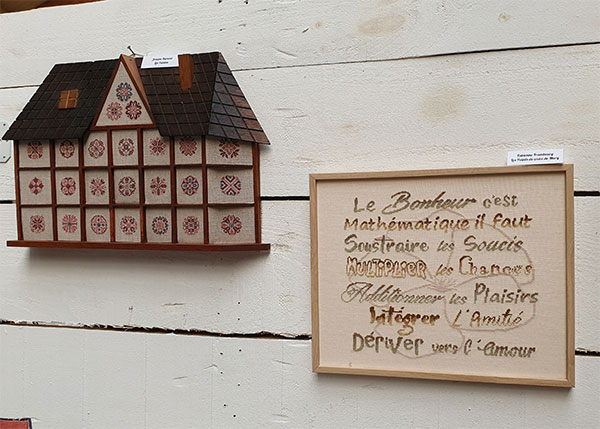 Le Bonheur c'est
Mathématique il faut
Soustraire les Soucis
MULTIPLIER les Chances
Additionner les Plaisirs
Intégrer L'Amitié
Dériver vers l'Amour